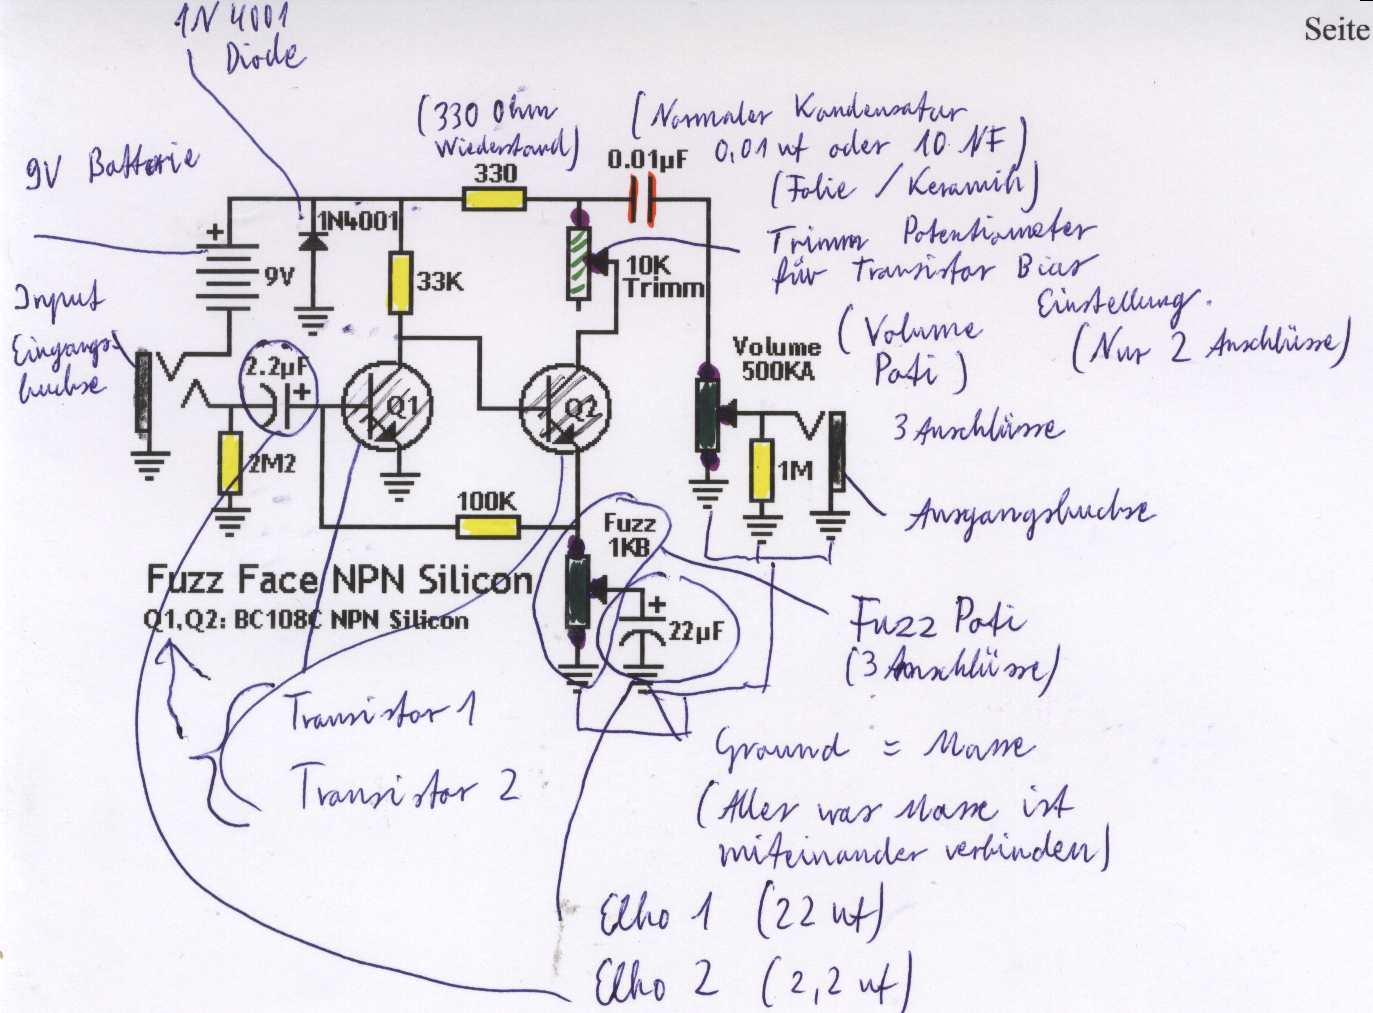 Seite
1N 4001
Diode
(330 Ohm
Wiederstand)
(Normaler Kondensator
0,01 uf oder 10 NF)
(Folie / Keramik)
9V Batterie
330
0.01µF
1N4001
+
9V
33K
10K
Trimm
Trimm Potentiometer
für Transistor Bias
Einstellung.
(Nur 2 Anschlüsse)
Input
Eingangs-
buchse
2.2µF
+
Q1
Q2
Volume
500KA
(Volume
Poti)
3 Anschlüsse
2M2
1M
100K
Ausgangsbuchse
Fuzz
1KB
Fuzz Face NPN Silicon
Q1,Q2: BC108C NPN Silicon
+
22µF
Fuzz Poti
(3 Anschlüsse)
Transistor 1
Transistor 2
Ground = Masse
(Alles was Masse ist
miteinander verbinden)
Elko 1 (22 uf)
Elko 2 (2,2 uf)